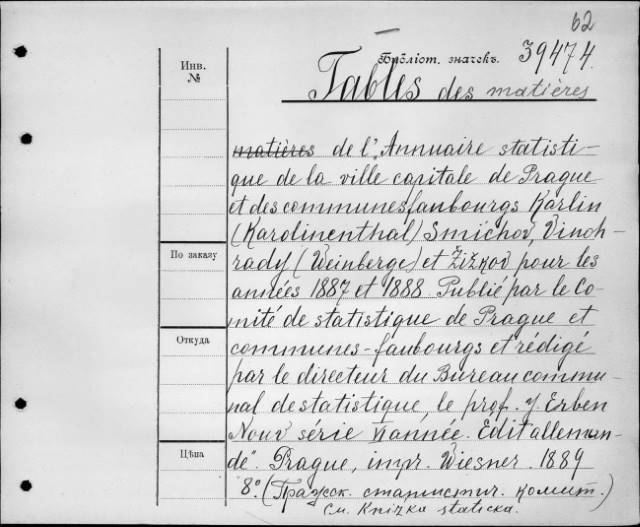 62
Инв.
№
Библiот. значекъ. 39474.
Tables des matières
matières de l'Annuaire statisti-
que de la ville capitale de Prague
et des communes faubourgs Karlin
(Karolinenthal) Smichov, Vinoh-
rady (Weinberge) et Žižkov pour les
По заказу
années 1887 et 1888. Publié par le Co-
mité de statistique de Prague et
Откуда
communes-faubourgs et rédigé
par le directeur du Bureau commu-
nal de statistique, le prof. J. Erben
Nouv série VI année. Edit alleman-
Цѣна
de". Prague, impr. Wiesner. 1889
8° (Пражск. статистич. комит.)
См. Knizka staticka.